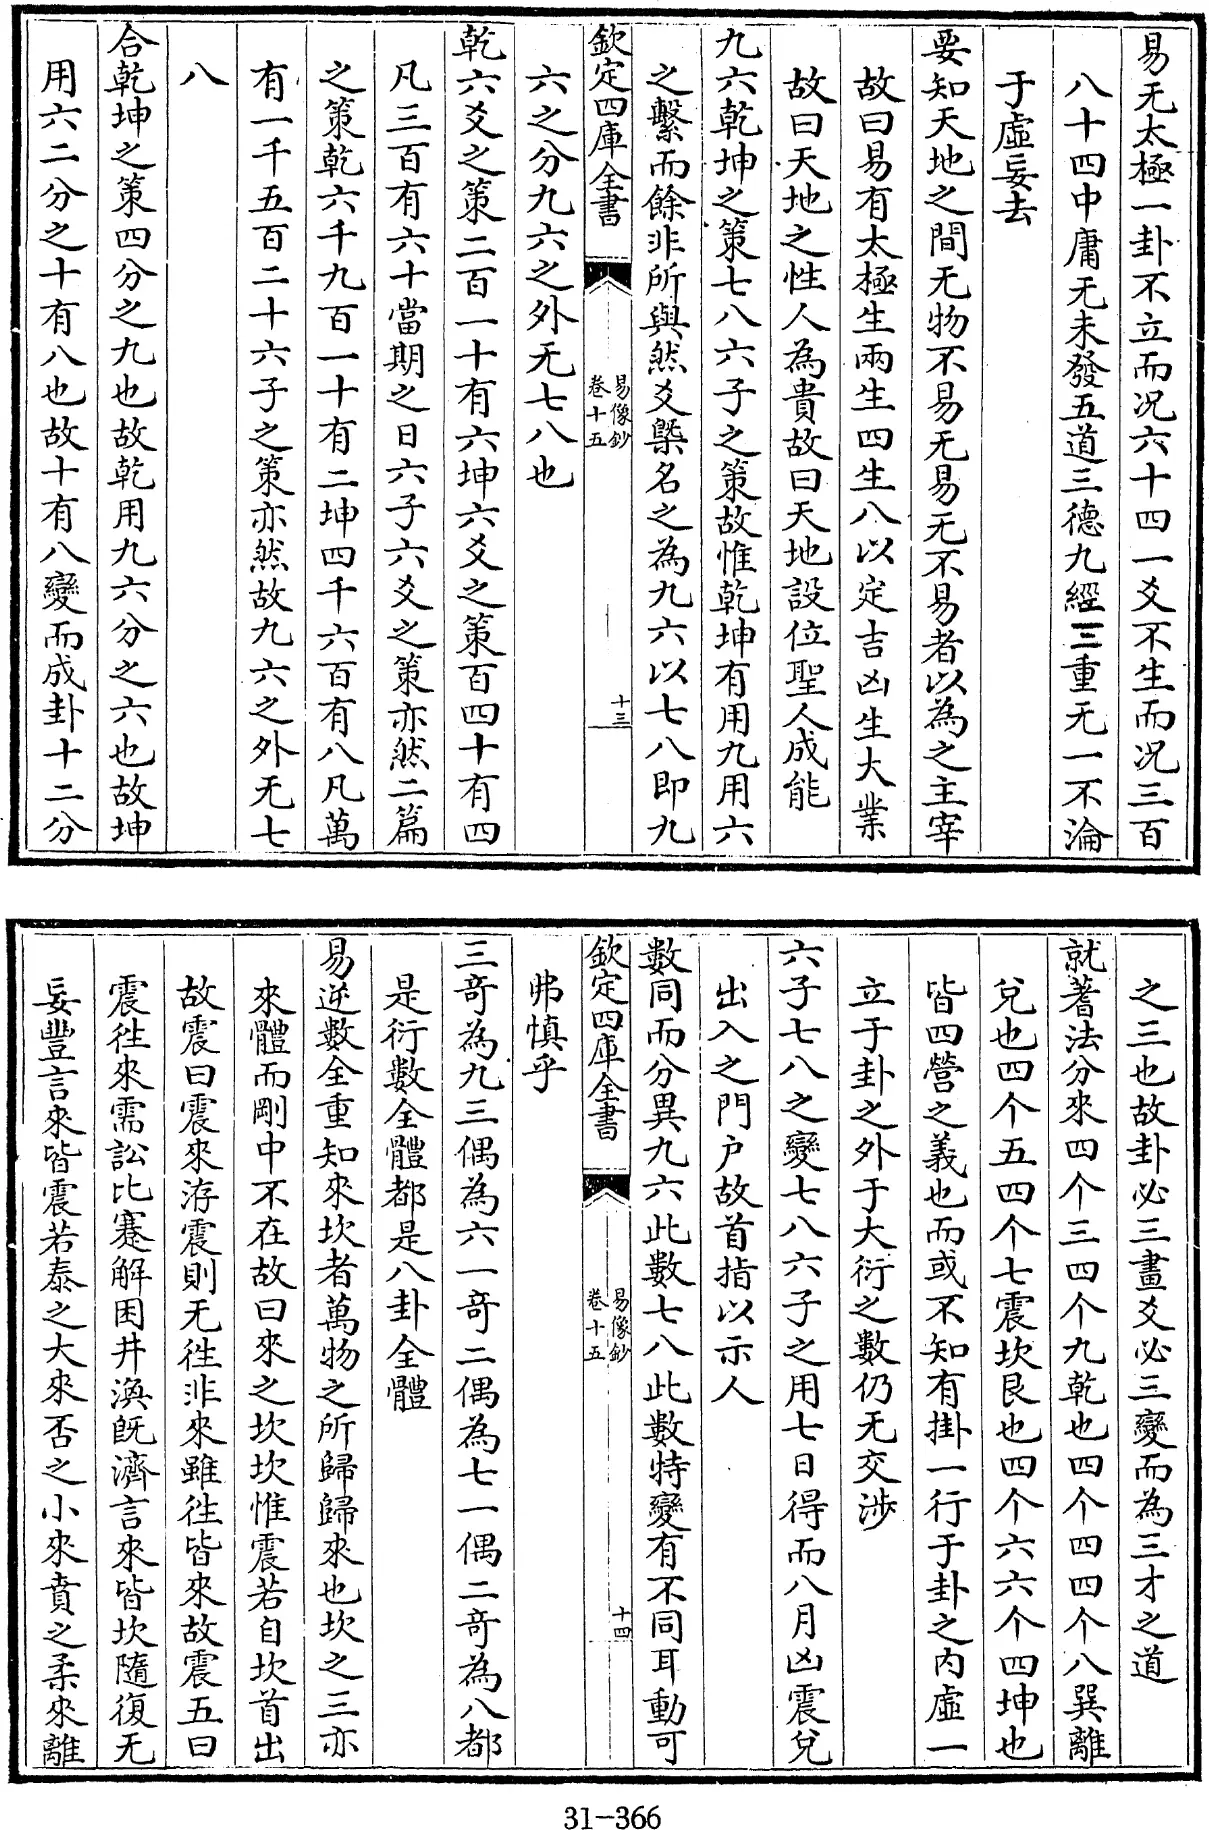 易无太極一卦不立而况六十四一爻不生而况三百
八十四中庸无未發五道三德九經三重无一不淪
于虛妄去
要知天地之間无物不易无易无不易者以為之主宰
故曰易有太極生兩生四生八以定吉凶生大業
故曰天地之性人為貴故曰天地設位聖人成能
九六乾坤之策七八六子之策故惟乾坤有用九用六
之繫而餘非所與然爻槩名之為九六以七八即九
欽定四庫全書
易像鈔
卷十五
十三
六之分九六之外无七八也
乾六爻之策二百一十有六坤六爻之策百四十有四
凡三百有六十當期之日六子六爻之策亦然二篇
之策乾六千九百一十有二坤四千六百有八凡萬
有一千五百二十六子之策亦然故九六之外无七
八
合乾坤之策四分之九也故乾用九六分之六也故坤
用六二分之十有八也故十有八變而成卦十二分
之三也故卦必三畫爻必三變而為三才之道
就蓍法分來四个三四个九乾也四个四四个八巽離
兌也四个五四个七震坎艮也四个六六个四坤也
皆四營之義也而或不知有掛一行于卦之内虛一
立于卦之外于大衍之數仍无交涉
六子七八之變七八六子之用七日得而八月凶震兌
出入之門户故首指以示人
數同而分異九六此數七八此數特變有不同耳動可
欽定四庫全書
易像鈔
卷十五
十四
弗慎乎
三奇為九三偶為六一奇二偶為七一偶二奇為八都
是衍數全體都是八卦全體
易逆數全重知來坎者萬物之所歸歸來也坎之三亦
來體而剛中不在故曰來之坎坎惟震若自坎首出
故震曰震來洊震則无徃非來雖徃皆來故震五曰
震徃來需訟比蹇解困井渙旣濟言來皆坎隨復无
妄豐言來皆震若泰之大來否之小來賁之柔來離
31-366